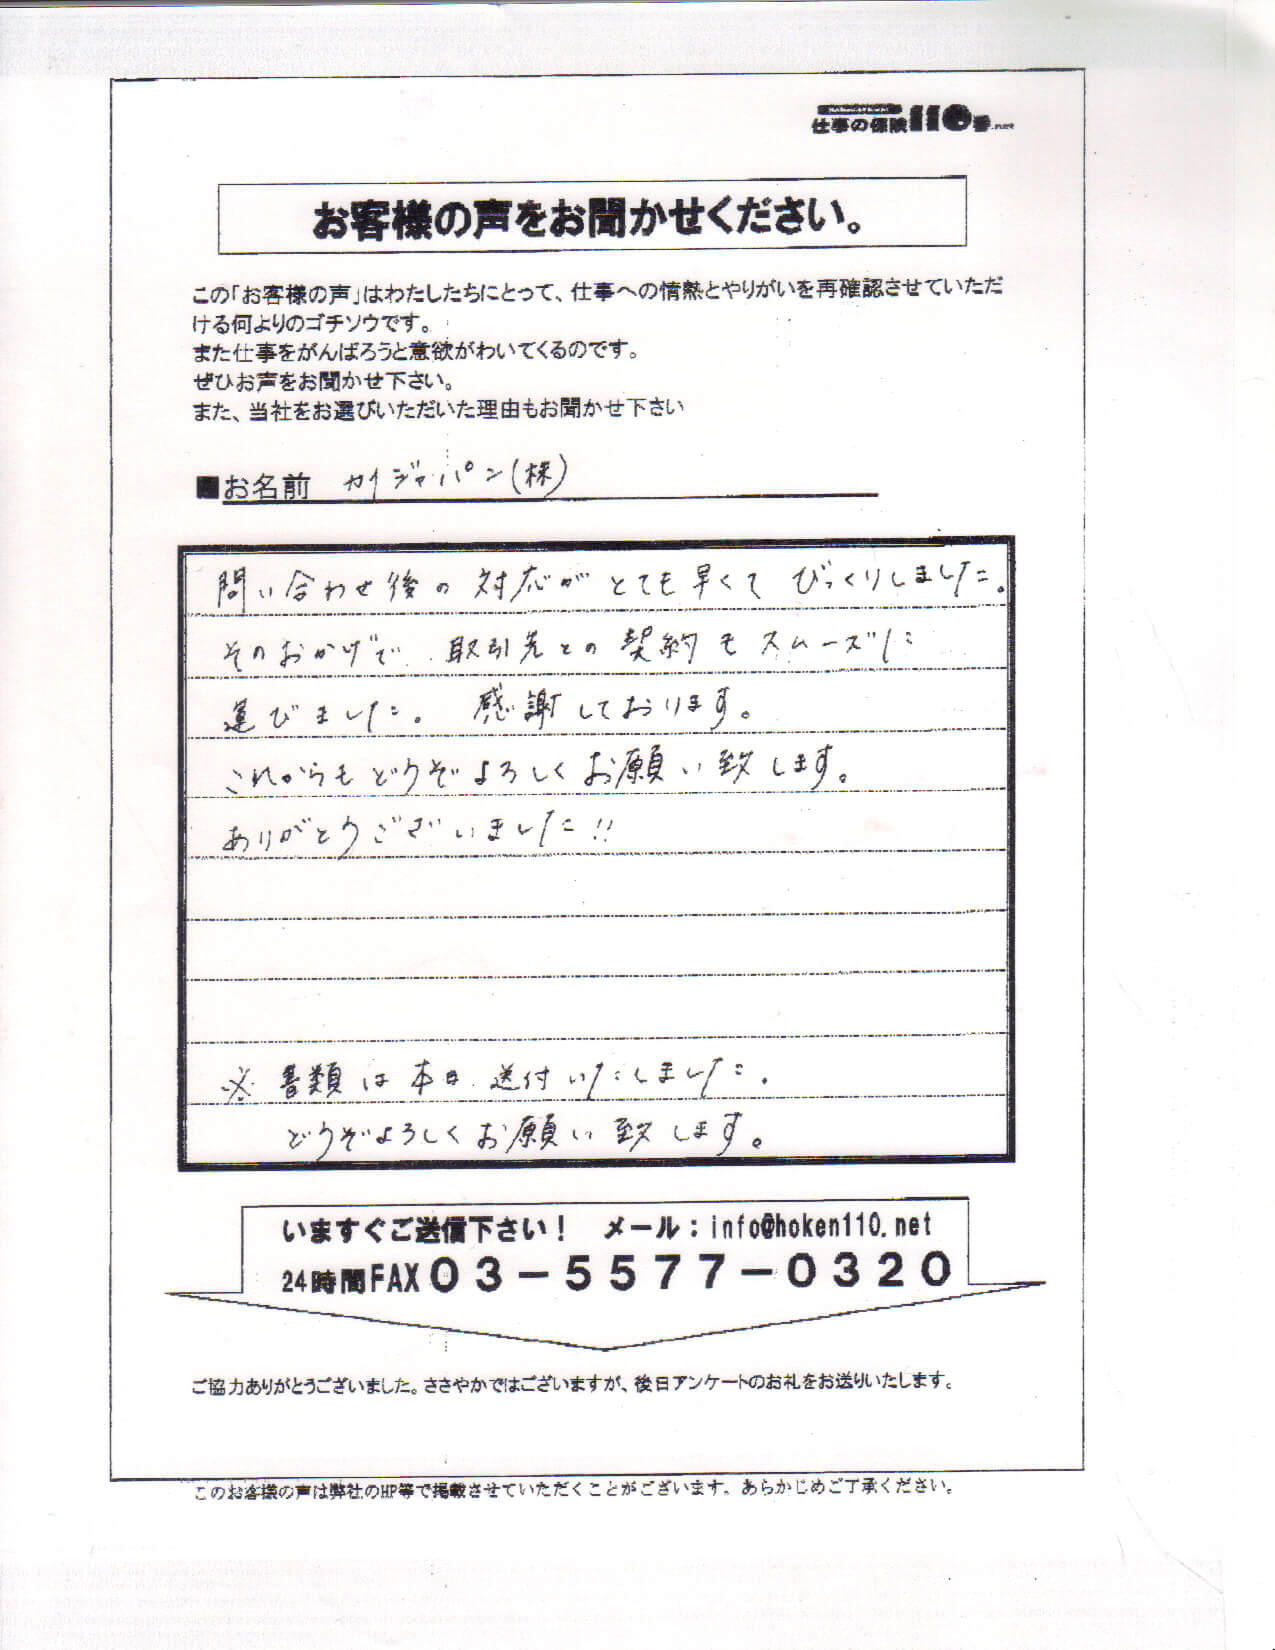 仕事の保険110番.net
お客様の声をお聞かせください。
この「お客様の声」はわたしたちにとって、仕事への情熱とやりがいを再確認させていただ
ける何よりのゴチソウです。
また仕事をがんばろうと意欲がわいてくるのです。
ぜひお声をお聞かせ下さい。
また、当社をお選びいただいた理由もお聞かせ下さい
■お名前 カイジャパン(株)
問い合わせ後の対応がとても早くてびっくりしました。
そのおかげで、取引先との契約もスムーズに
運びました。感謝しております。
これからもどうぞよろしくお願い致します。
ありがとうございました!!
※書類は本日、送付いたしました。
どうぞよろしくお願い致します。
いますぐご送信下さい! メール:info@hoken110.net
24時間FAX 03-5577-0320
ご協力ありがとうございました。ささやかではございますが、後日アンケートのお礼をお送りいたします。
このお客様の声は弊社のHP等で掲載させていただくことがございます。あらかじめご了承ください。